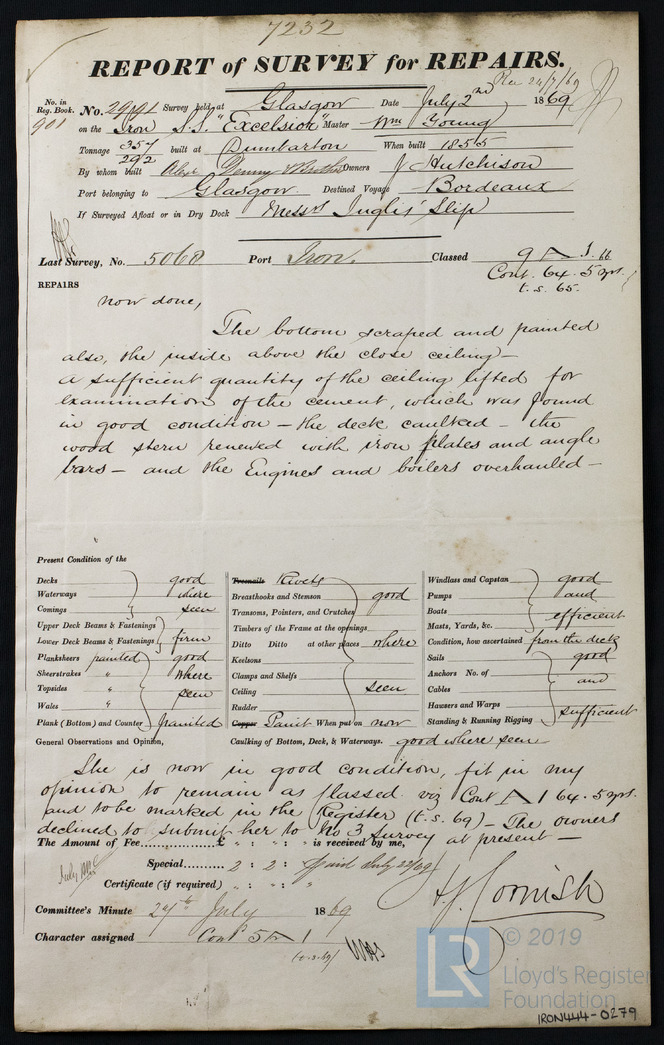 7232
REPORT of SURVEY for REPAIRS.
Rec 24/7/69
No. in Reg. Book. No. 29191 Survey held at Glasgow Date July 2nd 1869
901 on the Iron S.S. "Excelsior" Master Wm Young
Tonnage 357 292 built at Dumbarton When built 1855
By whom built Alexr Denny & Brothers Owners J Hutchison
Port belonging to Glasgow Destined Voyage Bordeaux
If Surveyed Afloat or in Dry Dock Messrs Inglis' Slip
Last Survey, No. 5068 Port Iron. Classed 9 A 1. 66
Cont. 64. 5 yrs.
t. s. 65.
REPAIRS
now done,
The bottom scraped and painted
also, the inside above the close ceiling –
a sufficient quantity of the ceiling lifted for
examination of the cement, which was found
in good condition – the deck caulked – the
wood stern renewed with iron plates and angle
bars – and the Engines and boilers overhauled –
Present Condition of the
Decks good
Waterways where
Comings seen
Upper Deck Beams & Fastenings
Lower Deck Beams & Fastenings firm
Planksheers painted good
Sheerstrakes " where
Topsides " seen
Wales "
Plank (Bottom) and Counter painted
Treenails Rivets
Breasthooks and Stemson good
Transoms, Pointers, and Crutches
Timbers of the Frame at the openings
Ditto Ditto at other places where
Keelsons
Clamps and Shelfs
Ceiling seen
Rudder
Copper Paint When put on now
Windlass and Capstan good
Pumps and
Boats
Masts, Yards, &c. efficient
Condition, how ascertained from the deck
Sails good
Anchors No. of and
Cables
Hawsers and Warps sufficient
Standing & Running Rigging
General Observations and Opinion, Caulking of Bottom, Deck, & Waterways. good where seen
She is now in good condition, fit in my
opinion to remain as classed viz Cont A 1 64. 5 yrs.
and to be marked in the Register (t. s. 69) – The owners
declined to submit her to No 3 Survey at present –
The Amount of Fee £ " : " : " is received by me,
Special 2 : 2 : paid July 22/69
Certificate (if required) " : " : "
H J Cornish
Committee's Minute 27th July 1869
Character assigned Contd 5 A 1
(t. s. 69)
© 2019
LR
Lloyd's Register
Foundation
IRON444-0279